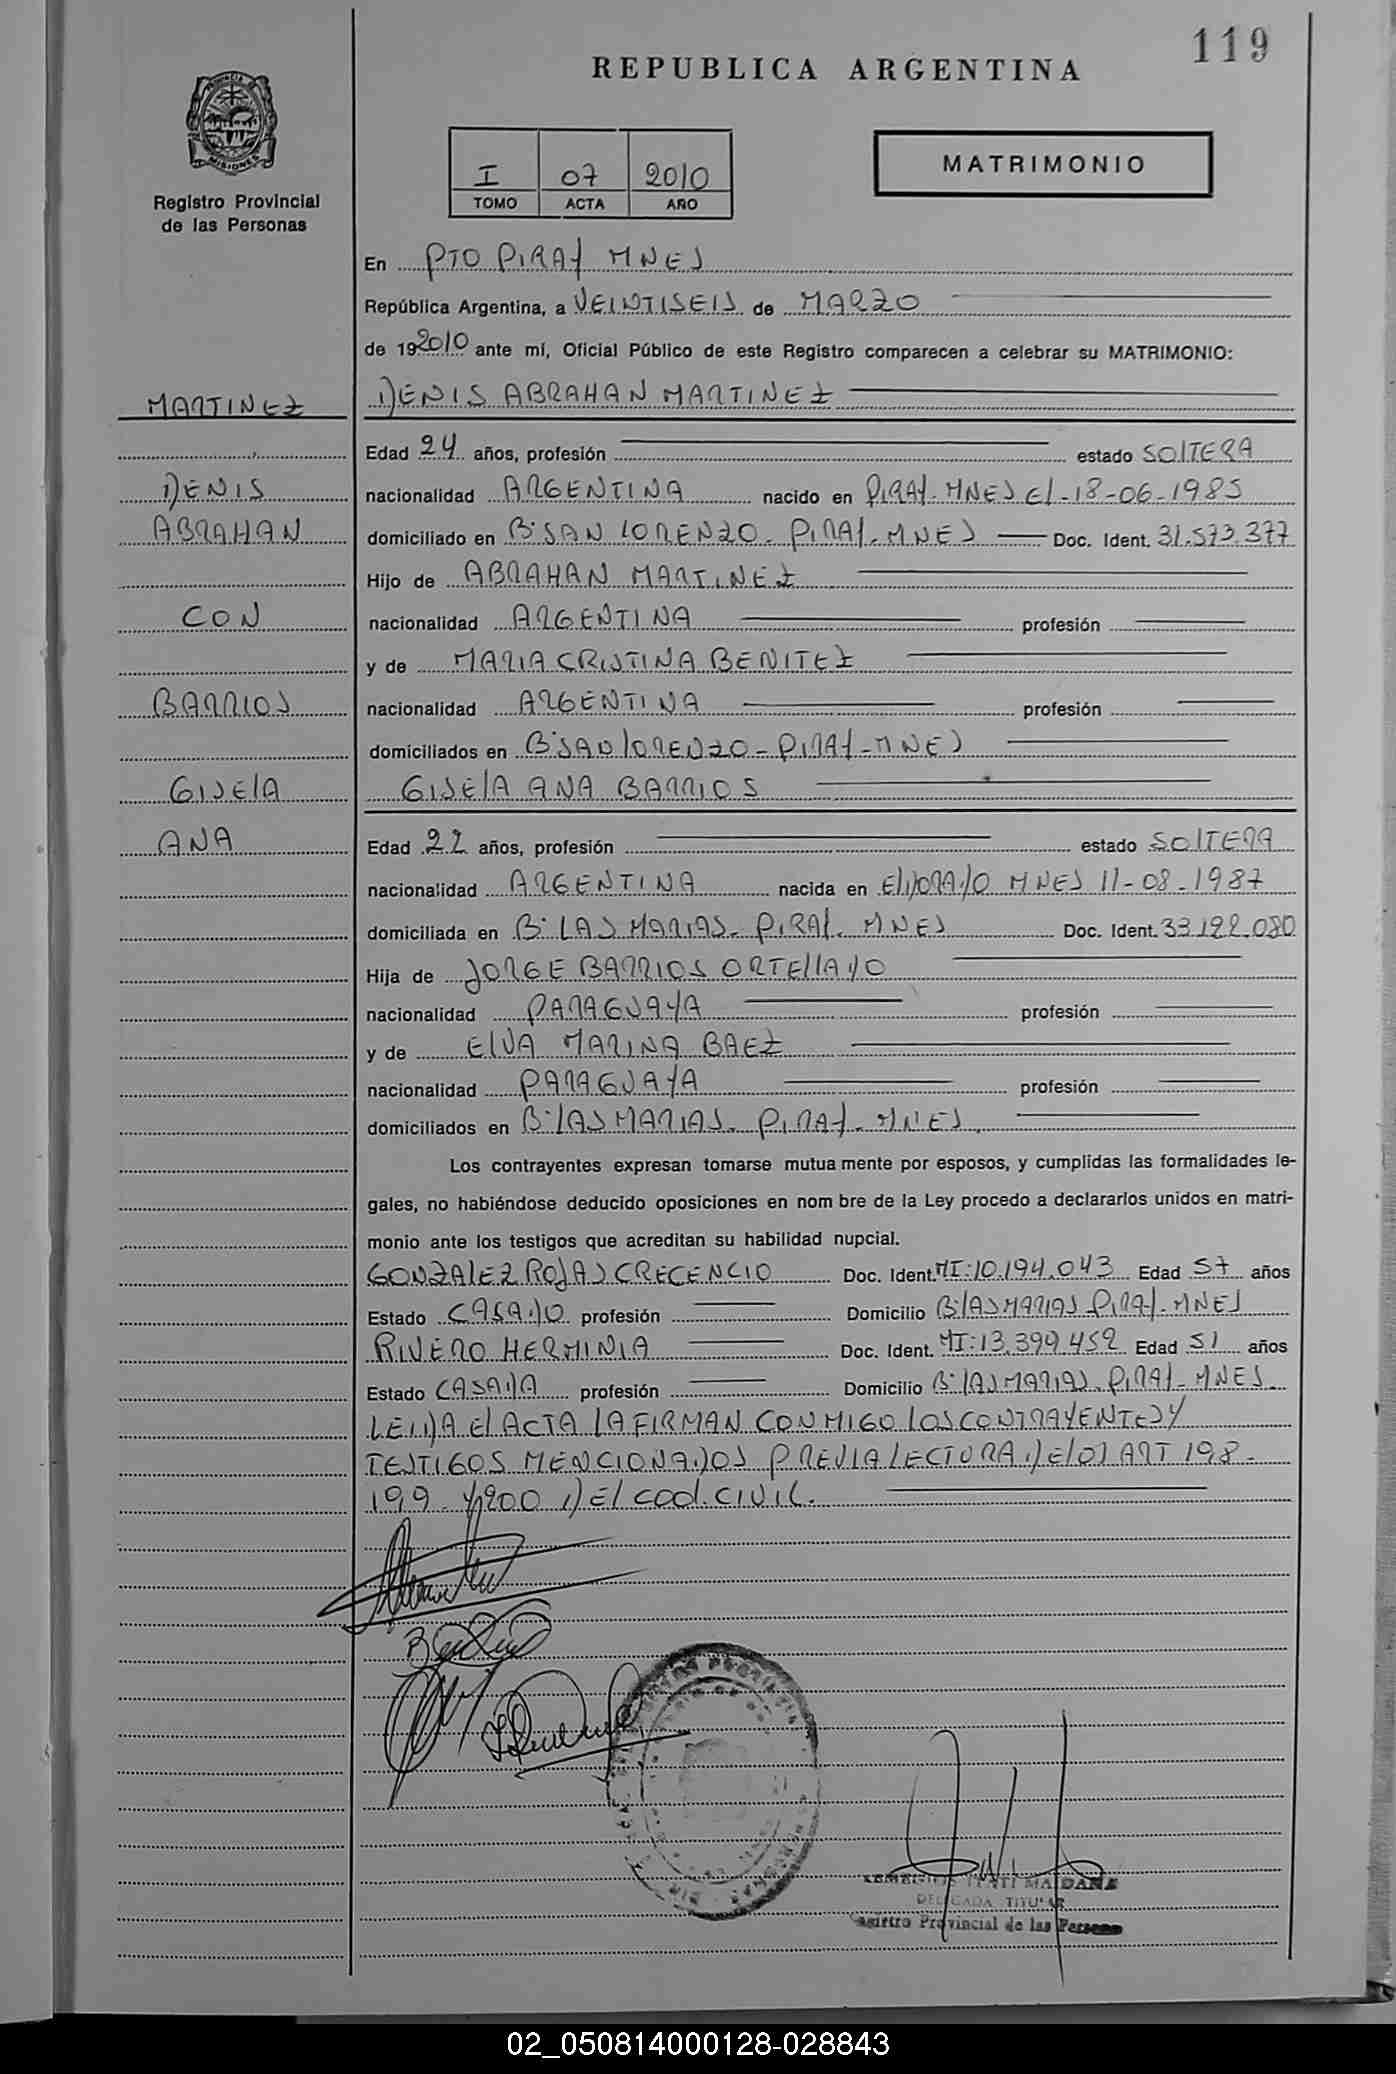 119
REPUBLICA ARGENTINA
PROVINCIA DE
MISIONES
Registro Provincial
de las Personas
I 07 2010
TOMO ACTA AÑO
MATRIMONIO
En PTO PIRAY MNES
República Argentina, a VEINTISEIS de MARZO
de 192010 ante mí, Oficial Público de este Registro comparecen a celebrar su MATRIMONIO:
MARTINEZ DENIS ABRAHAN MARTINEZ
Edad 24 años, profesión estado SOLTERA
DENIS nacionalidad ARGENTINA nacido en PIRAY-MNES EL-18-06-1985
ABRAHAN domiciliado en B:SAN LORENZO-PIRAY-MNES Doc. Ident. 31.573.377
Hijo de ABRAHAN MARTINEZ
CON nacionalidad ARGENTINA profesión
y de MARIA CRISTINA BENITEZ
BARRIOS nacionalidad ARGENTINA profesión
domiciliados en B:SAN LORENZO-PIRAY-MNES
GISELA GISELA ANA BARRIOS
ANA Edad 22 años, profesión estado SOLTERA
nacionalidad ARGENTINA nacida en ELDORADO MNES 11-08-1987
domiciliada en B: LAS MARIAS-PIRAY-MNES Doc. Ident. 33.122.080
Hija de JORGE BARRIOS ORTELLADO
nacionalidad PARAGUAYA profesión
y de ELVA MARINA BAEZ
nacionalidad PARAGUAYA profesión
domiciliados en B:LAS MARIAS-PIRAY-MNES.
Los contrayentes expresan tomarse mutua mente por esposos, y cumplidas las formalidades le-
gales, no habiéndose deducido oposiciones en nom bre de la Ley procedo a declararlos unidos en matri-
monio ante los testigos que acreditan su habilidad nupcial.
GONZALEZ ROJAS CRECENCIO Doc. Ident. MI:10.194.043 Edad 57 años
Estado CASADO profesión Domicilio B:LAS MARIAS-PIRAY-MNES
RIVERO HERMINIA Doc. Ident. MI:13.399.452 Edad 51 años
Estado CASADA profesión Domicilio B:LAS MARIAS-PIRAY-MNES
LEIDA EL ACTA LA FIRMAN CONMIGO LOS CONTRAYENTES Y
TESTIGOS MENCIONADOS PREVIA LECTURA DE LOS ART 198-
199 Y 200 DEL COD. CIVIL.
ITATI MAIDANA
DELEGADA TITULAR
Registro Provincial de las Personas
02_050814000128-028843